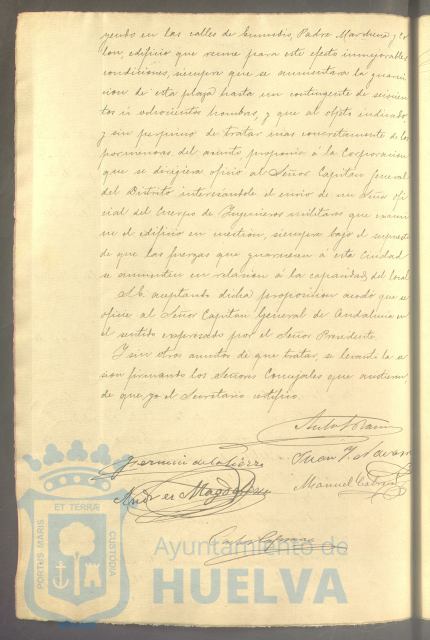 yendo en las calles de Gumiel, Padre Marchena y Co-
lon, edificio que reune para este efecto inmejorables
condiciones, siempre que se aumentara la guarni-
cion de esta plaza hasta un contingente de seiscien-
tos ú ochocientos hombres, y que al objeto indicado
y sin perjuicio de tratar mas concretamente de los
pormenores del asunto, proponia á la Corporacion
que se dirigiera oficio al Señor Capitan General
del Distrito interesándole el envio de un Señor Ofi-
cial del Cuerpo de Ingenieros militares que exami-
ne el edificio en cuestion, siempre bajo el supuesto
de que las fuerzas que guarnecen á esta Ciudad
se aumenten en relacion á la capacidad del local.
S.E. aceptando dicha proposicion acordó que se
oficie al Señor Capitan General de Andalucia en
el sentido expresado por el Señor Presidente.
Y sin otros asuntos de que tratar, se levantó la se-
sion firmando los Señores Concejales que asistieron
de que, yo el Secretario certifico.
Juan J.
Manuel
PORTUS MARIS
ET TERRÆ
CUSTODIA
Ayuntamiento de
HUELVA